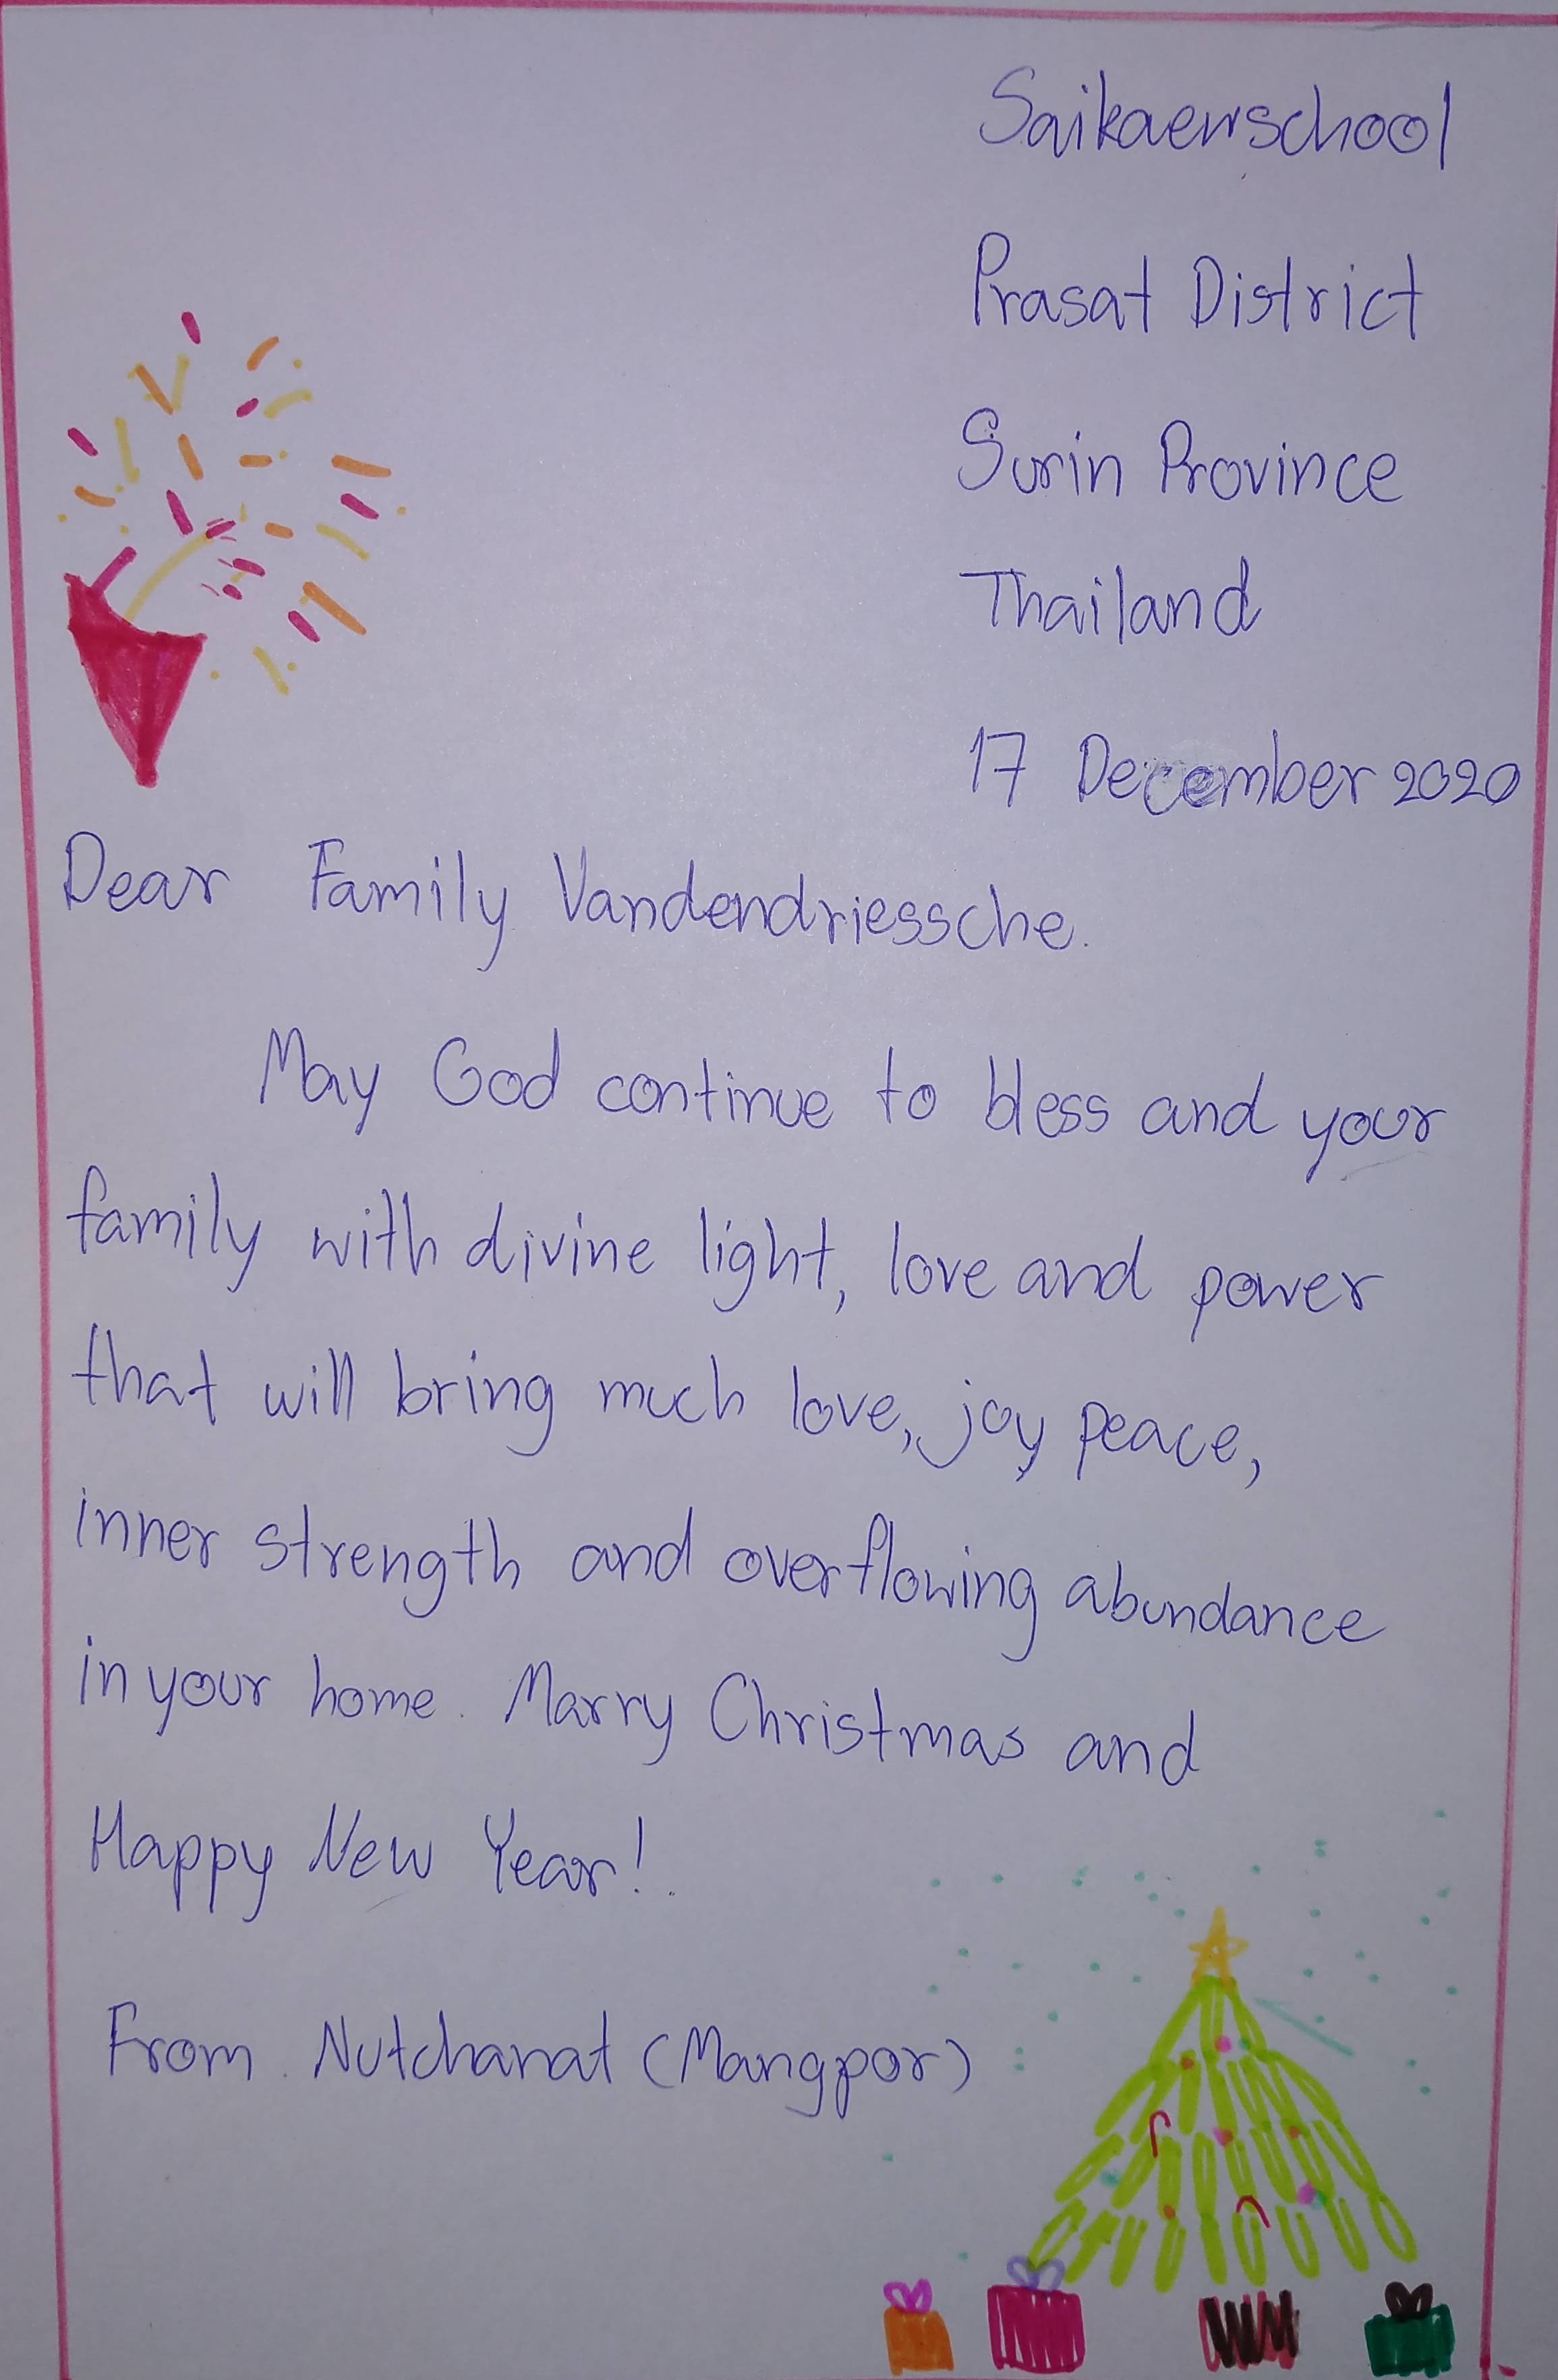 Saikaewschool
Prasat District
Surin Province
Thailand
17 December 2020
Dear Family Vandendriessche.
May God continue to bless and your
family with divine light, love and power
that will bring much love, joy peace,
inner strength and overflowing abundance
in your home. Marry Christmas and
Happy New Year!
From. Nutchanat (Mangpor)